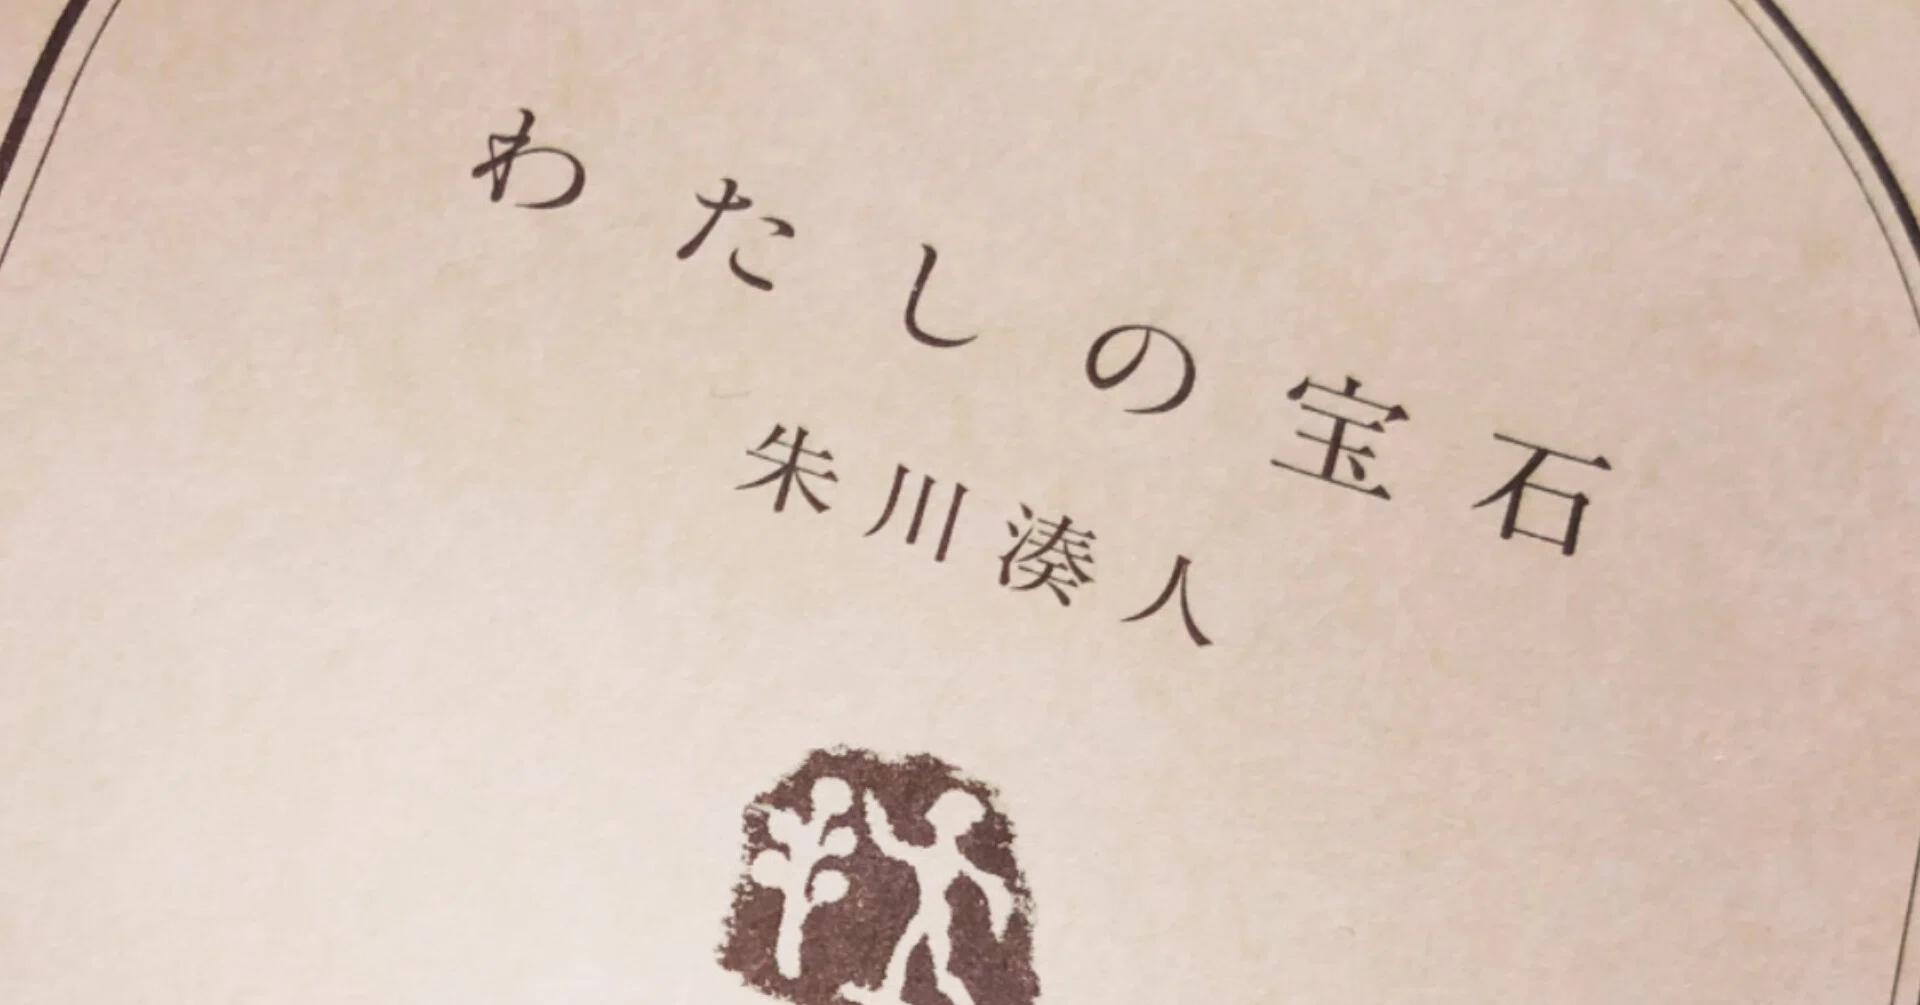 わたしの宝石
朱川湊人